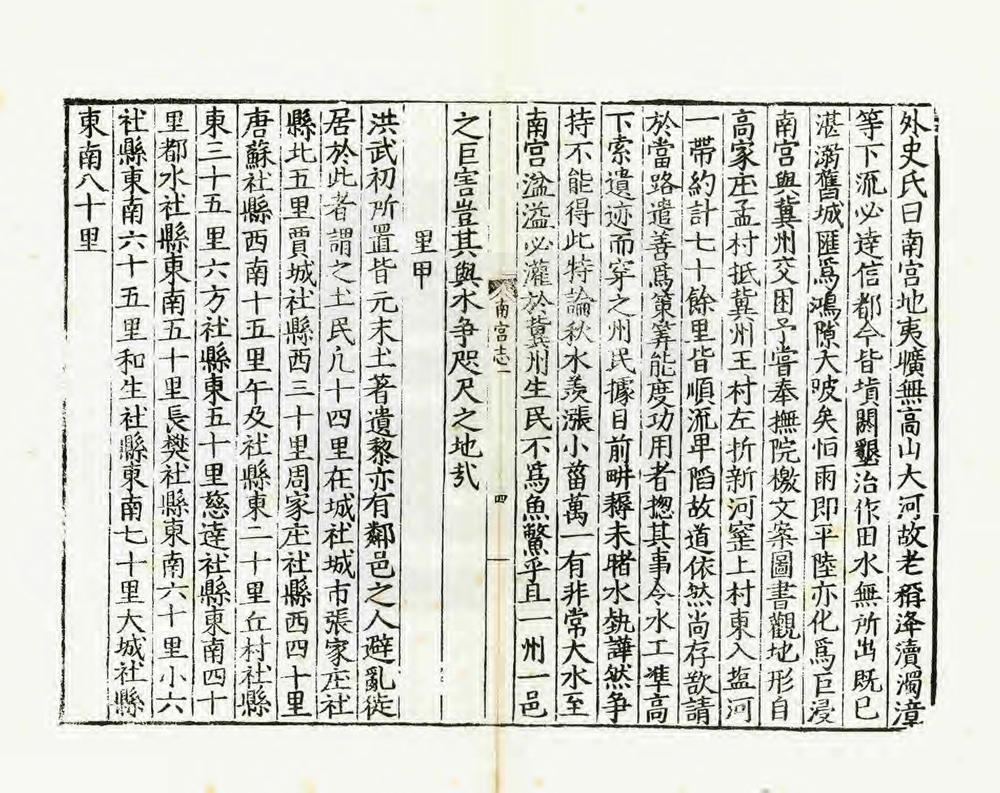 外史氏曰南宮地夷曠無高山大河故老稱洚瀆濁漳
等下流必達信都今皆填閼墾治作田水無所出既已
湛溺舊城匯為鴻隙大陂矣恒雨即平陸亦化為巨浸
南宮與冀州交困予嘗奉撫院檄文案圖書觀地形自
高家庄孟村抵冀州王村左折新河窪上村東入塩河
一帶約計七十餘里皆順流卑䧟故道依然尚存欲請
於當路遣善為策筭能度功用者揔其事令水工準高
下索遺迹而穿之州民據目前畊耨未睹水埶譁然爭
持不能得此特論秋水羨漲小菑萬一有非常大水至
南宮湓溢必灌於冀州生民不為魚鱉乎且一州一邑
之巨害豈其與水争咫尺之地㢤
南宮志二
四
里甲
洪武初所置皆元末土著遺黎亦有鄰邑之人避亂徙
居於此者謂之土民凢十四里在城社城市張家庄社
縣北五里賈城社縣西三十里周家庄社縣西四十里
唐蘇社縣西南十五里午及社縣東二十里丘村社縣
東三十五里六方社縣東五十里慈達社縣東南四十
里都水社縣東南五十里長樊社縣東南六十里小六
社縣東南六十五里和生社縣東南七十里大城社縣
東南八十里